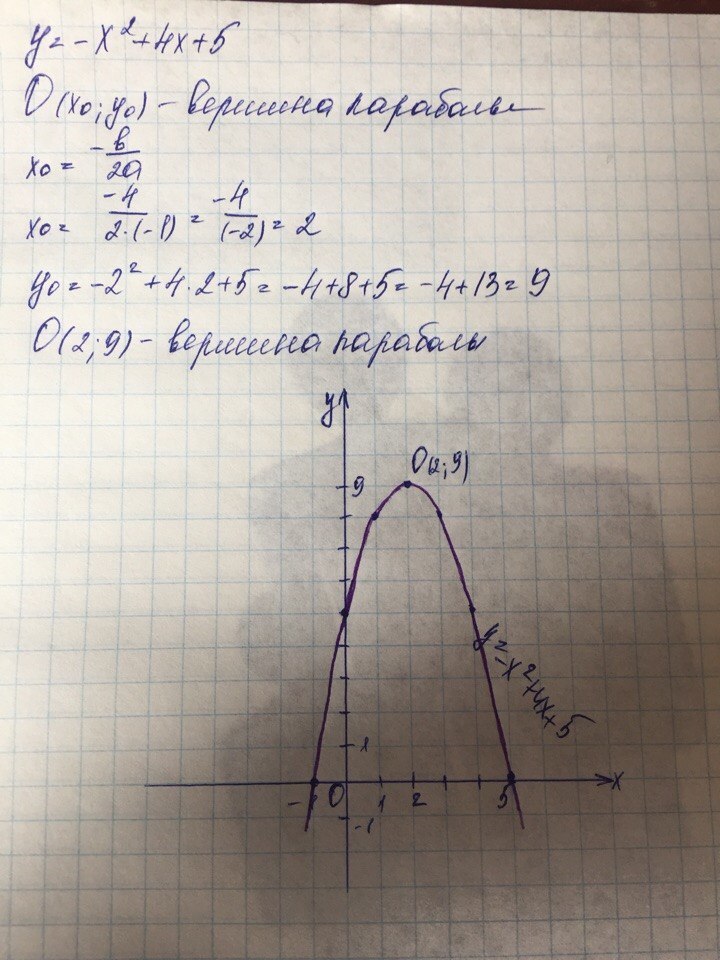 y = -x² + 4x + 5
O(x₀; y₀) - вершина параболы
x₀ = -b/2a
x₀ = -4/2·(-1) = -4/(-2) = 2
y₀ = -2² + 4·2 + 5 = -4+8+5 = -4+13 = 9
O(2; 9) - вершина параболы
y
O(2; 9)
9
y = -x²+4x+5
1
-1 0 1 2 5 x
-1